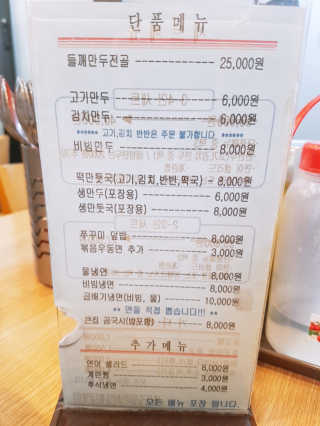 단품메뉴
들깨만두전골 ------------- 25,000원
고기만두 ---------------- 6,000원
김치만두 ---------------- 6,000원
****** 고기,김치 반반은 주문 불가합니다 ******
비빔만두 ---------------- 8,000원
떡만둣국(고기,김치,반반,떡국) - 8,000원
생만두(포장용) ------------- 6,000원
생만둣국(포장용) ----------- 8,000원
쭈꾸미 덮밥 -------------- 8,000원
볶음우동면 추가 ------------ 3,000원
물냉면 ------------------ 8,000원
비빔냉면 ---------------- 8,000원
곱빼기냉면(비빔, 물) --------- 10,000원
** 면을 직접 뽑습니다!!! **
손칼국시(밥포함) ----------- 8,000원
추가메뉴
연어 샐러드 -------------- 8,000원
계란찜 ------------------ 3,000원
후식냉면 ---------------- 4,000원